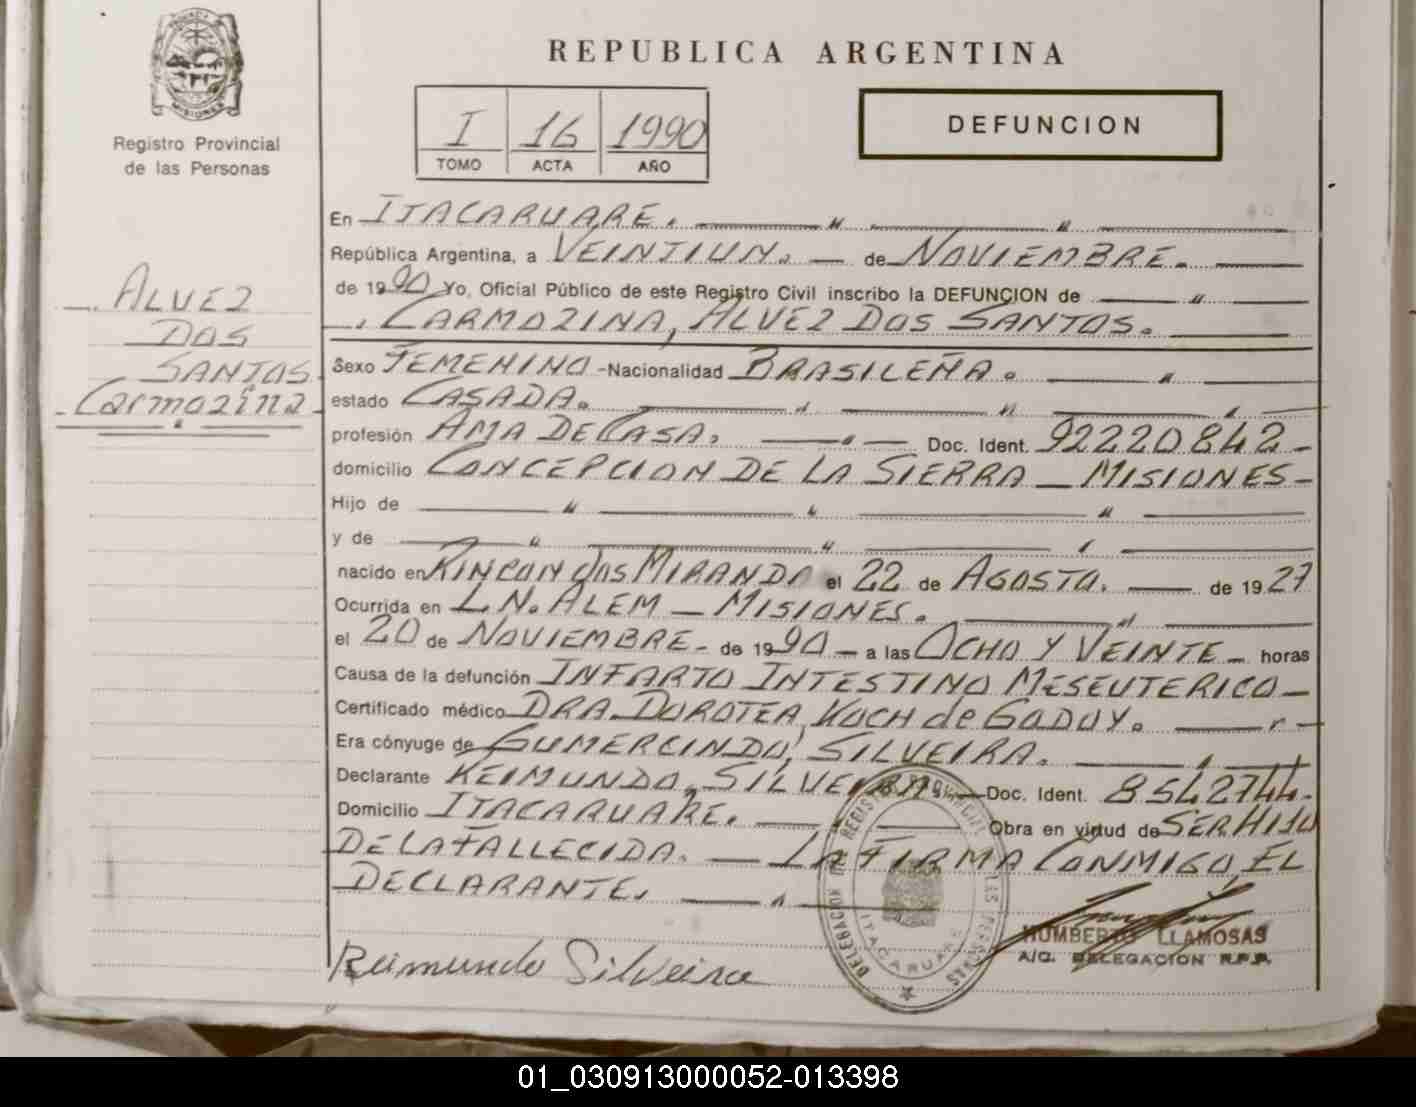 PROVINCIA DE
MISIONES
Registro Provincial
de las Personas
REPUBLICA ARGENTINA
I 16 1990
TOMO ACTA AÑO
DEFUNCION
ALVEZ
DOS
SANTOS
Carmozina
En ITACARUARE.
República Argentina, a VEINTIUN. de NOVIEMBRE.
de 1990 Yo, Oficial Público de este Registro Civil inscribo la DEFUNCION de
CARMOZINA, ALVEZ DOS SANTOS.
Sexo FEMENINO - Nacionalidad BRASILEÑA.
estado CASADA.
profesión AMA DE CASA. Doc. Ident. 92220842-
domicilio CONCEPCION DE LA SIERRA - MISIONES-
Hijo de
y de
nacido en RINCON dos MIRANDA el 22 de AGOSTO. de 1927
Ocurrida en L.N. ALEM - MISIONES.
el 20 de NOVIEMBRE - de 1990 - a las OCHO Y VEINTE - horas
Causa de la defunción INFARTO INTESTINO MESEUTERICO-
Certificado médico DRA. DOROTEA KOCH de GODOY.
Era cónyuge de GUMERCINDO, SILVEIRA.
Declarante REIMUNDO, SILVEIRA. - Doc. Ident. 8542744.
Domicilio ITACARUARE. Obra en virtud de SER HIJO
DE LA FALLECIDA. - LA FIRMA CONMIGO, EL
DECLARANTE.
Raimundo Silveira
DELEGACION DEL REGISTRO PROVINCIAL DE LAS PERSONAS
ITACARUARE
HUMBERTO LLAMOSAS
A/C. DELEGACION R.P.P.
01_030913000052-013398